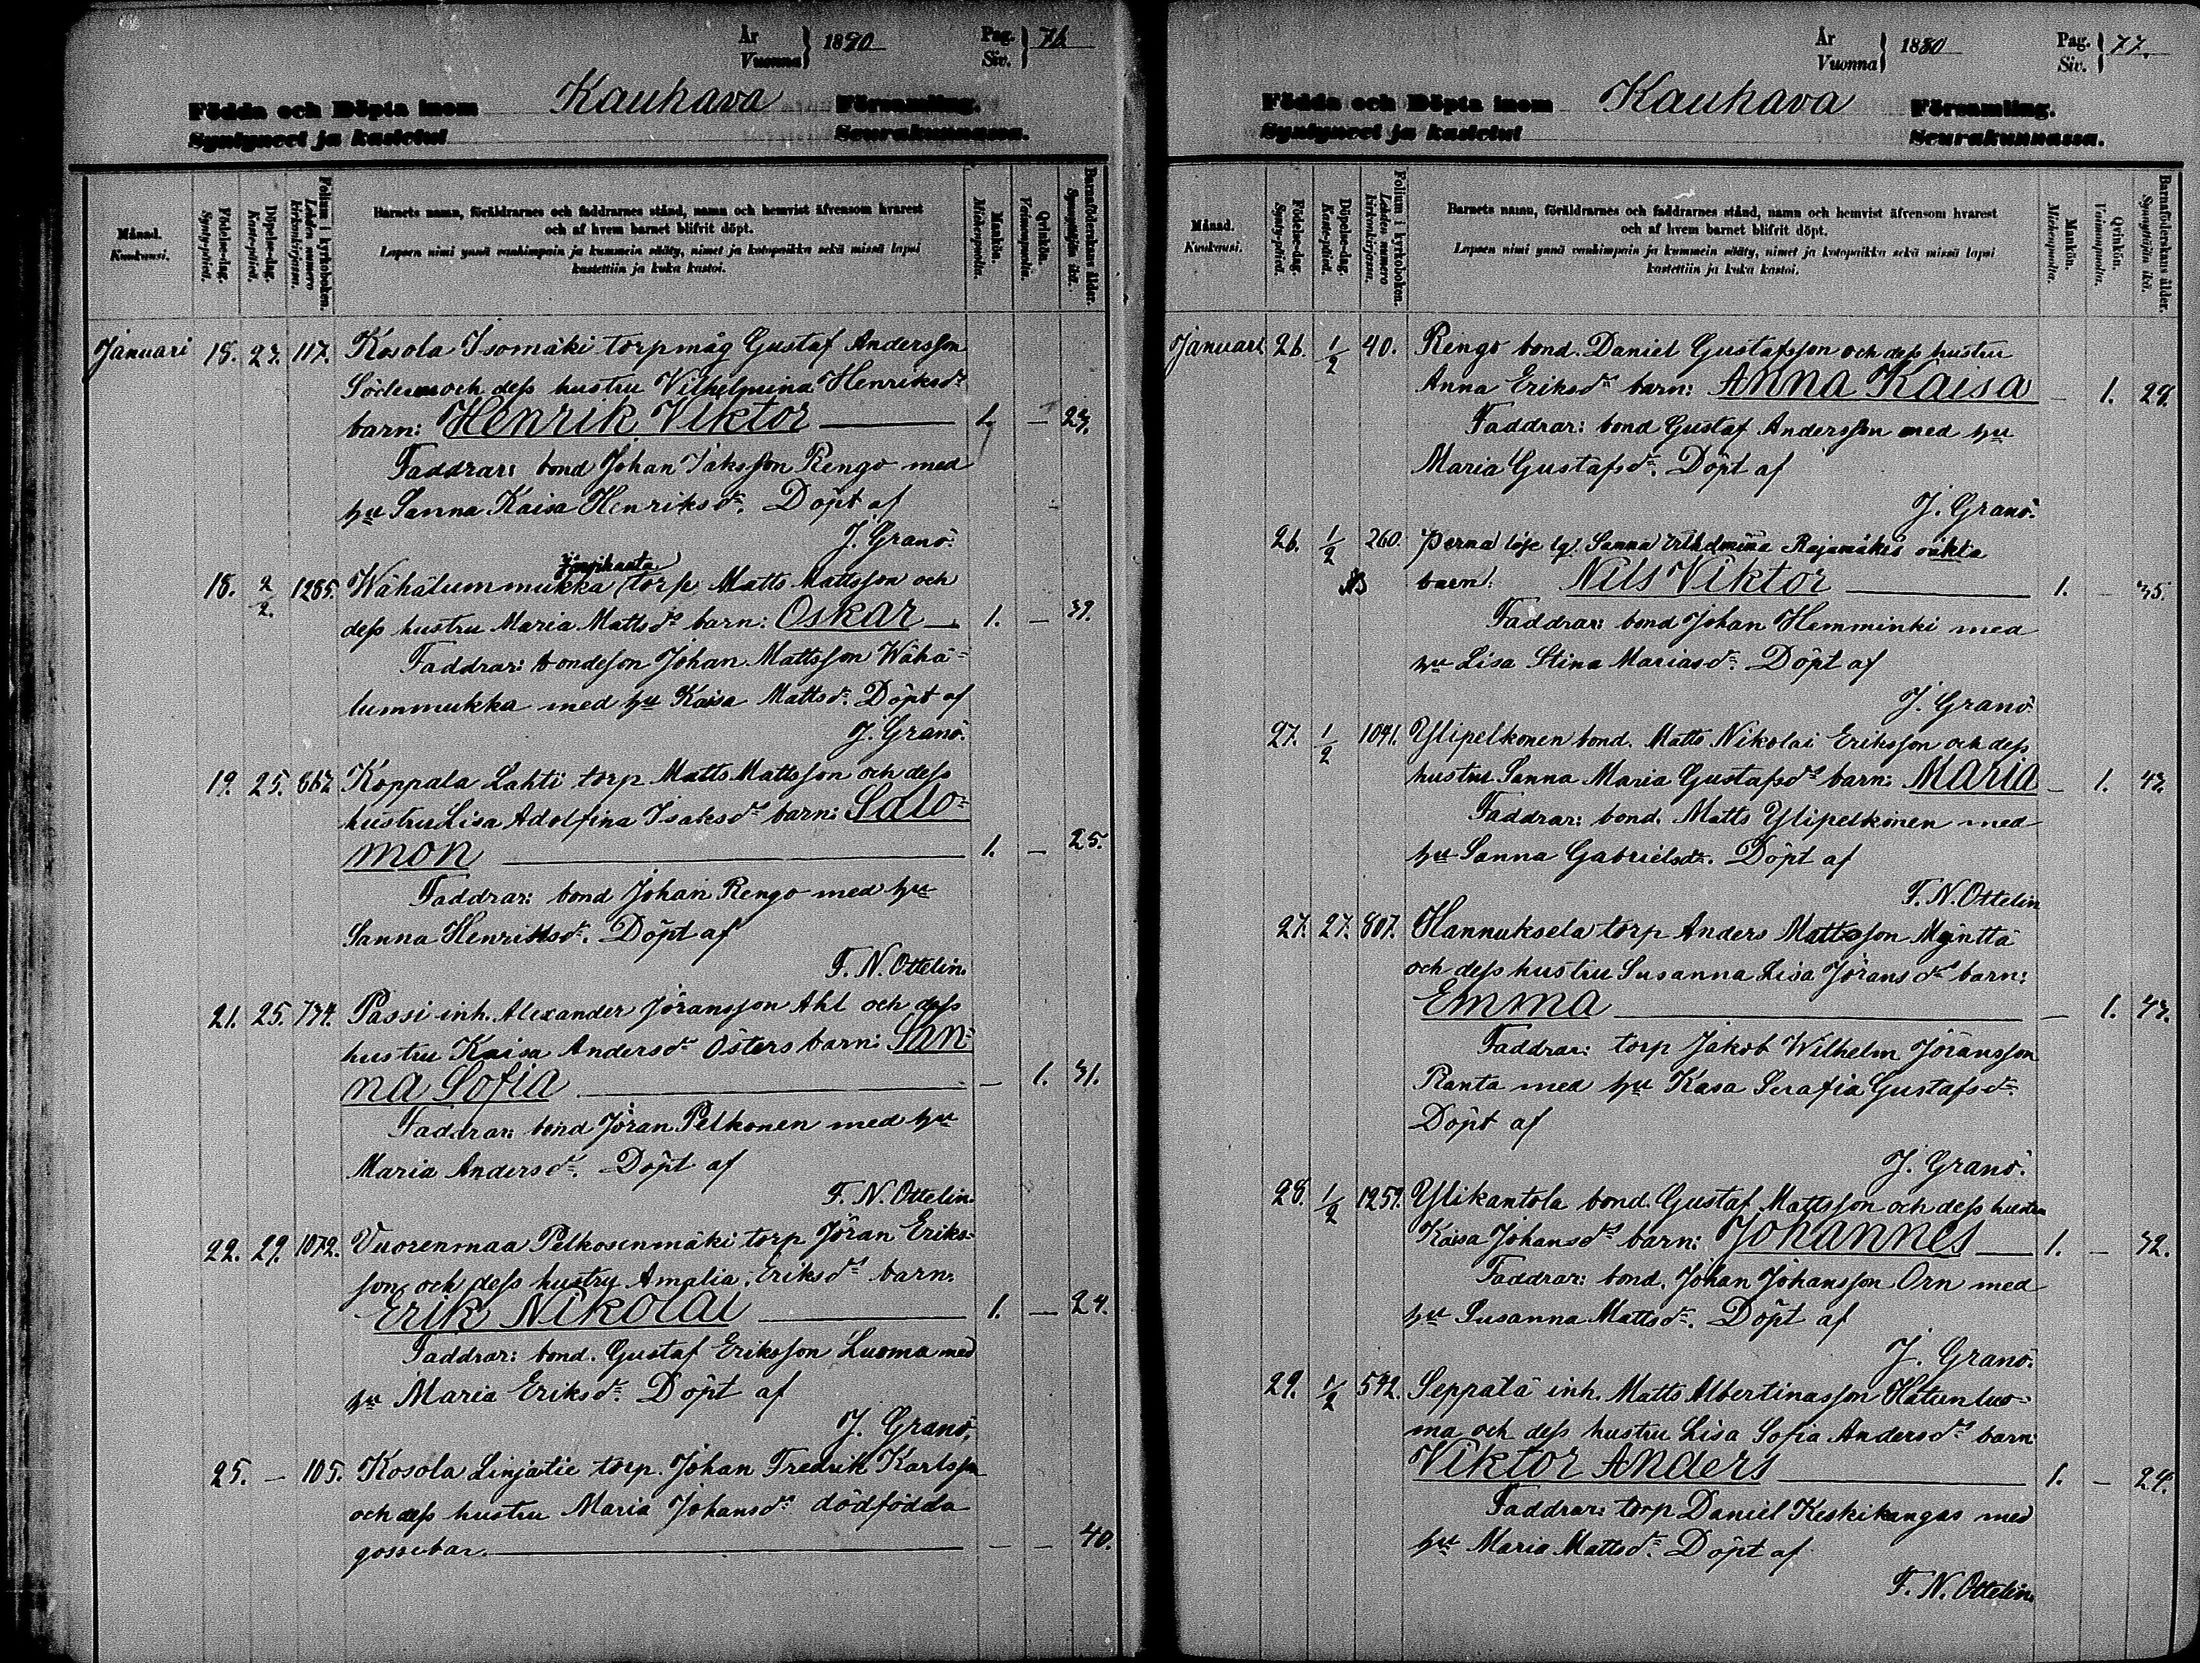 År
Vuonna } 1890
Pag.
Siv. } 76
Födda och Döpta inom Kauhava Församling.
Syntyneet ja kastetut Seurakunnassa.
Månad.
Kuukausi.
Födelse-dag.
Synty-päivä.
Döpelse-dag.
Kaste-päivä.
Folium i kyrkoboken.
Lehden numero
kirkonkirjassa.
Barnets namn, föräldrarnes och faddrarnes stånd, namn och hemvist äfvensom hvarest
och af hvem barnet blifvit döpt.
Lapsen nimi ynnä vanhimpain ja kummein sääty, nimet ja kotopaikka sekä missä lapsi
kastettiin ja kuka kastoi.
Mankön.
Miehenpuolta.
Qvinkön.
Vaimonpuolta.
Barnaföderskans ålder.
Synnyttäjän ikä.
Januari 18. 27. 117. Kosola Isomäki torpmåg Gustaf Andersson
och dess hustru Vilhelmina Henriksdr
barn: Henrik Viktor 1. — 27.
Faddrar: bond Johan Isaksson Rengo med
hu Sanna Kaisa Henriksdr. Döpt af
J. Granö.
18. 2/2. 1285. Wähälummukka torp Matts Mattsson och
dess hustru Maria Mattsdr barn: Oskar 1. — 39.
Faddrar: bondeson Johan Mattsson Wähä-
lummukka med hu Kaisa Mattsdr. Döpt af
J. Granö.
19. 25. 667. Koppala Lahti torp Matts Mattsson och dess
hustru Lisa Adolfina Isaksdr barn: Salo-
mon 1. — 25.
Faddrar: bond Johan Rengo med hu
Sanna Henriksdr. Döpt af
F. N. Ottelin.
21. 25. 734. Passi inh. Alexander Jöransson Ahl och dess
hustru Kaisa Andersdr Östers barn: San-
na Sofia — 1. 31.
Faddrar: bond Jöran Pelkonen med hu
Maria Andersdr. Döpt af
F. N. Ottelin.
22. 29. 1072. Vuorenmaa Pelkosenmäki torp Jöran Eriks-
son och dess hustru Amalia Eriksdr barn:
Erik Nikolai 1. — 24.
Faddrar: bond. Gustaf Eriksson Luoma med
hu Maria Eriksdr. Döpt af
J. Granö.
25. — 105. Kosola Linjatie torp. Johan Fredrik Karlsson
och dess hustru Maria Johansdr dödfödda
gossebar. — — 40.
År
Vuonna } 1880
Pag.
Siv. } 77.
Födda och Döpta inom Kauhava Församling.
Syntyneet ja kastetut Seurakunnassa.
Månad.
Kuukausi.
Födelse-dag.
Synty-päivä.
Döpelse-dag.
Kaste-päivä.
Folium i kyrkoboken.
Lehden numero
kirkonkirjassa.
Barnets namn, föräldrarnes och faddrarnes stånd, namn och hemvist äfvensom hvarest
och af hvem barnet blifvit döpt.
Lapsen nimi ynnä vanhimpain ja kummein sääty, nimet ja kotopaikka sekä missä lapsi
kastettiin ja kuka kastoi.
Mankön.
Miehenpuolta.
Qvinkön.
Vaimonpuolta.
Barnaföderskans ålder.
Synnyttäjän ikä.
Januari 26. 1/2 40. Rengo bond. Daniel Gustafsson och dess hustru
Anna Eriksdr barn: Anna Kaisa — 1. 29.
Faddrar: bond Gustaf Andersson med hu
Maria Gustafsdr. Döpt af
J. Granö.
26. 1/2 260. Perna Sanna Rajamäkis oäkta
barn: Nils Viktor 1. — 35.
Faddrar: bond Johan Hemminki med
hu Lisa Stina Mariasdr. Döpt af
J. Granö.
27. 1/2 1041. Ylipelkonen bond. Matts Nikolai Eriksson och dess
hustru Sanna Maria Gustafsdr barn: Maria — 1. 43.
Faddrar: bond. Matts Ylipelkonen med
hu Sanna Gabrielsdr. Döpt af
F. N. Ottelin
27. 27. 807. Hannuksela torp Anders Mattsson Mänttä
och dess hustru Susanna Lisa Jöransdr barn:
Emma — 1. 43.
Faddrar: torp Jakob Wilhelm Jöransson
Ranta med hu Kasa Serafia Gustafsdr.
Döpt af
J. Granö.
28. 1/2 1259. Ylikantola bond. Gustaf Mattsson och dess hustru
Kaisa Johansdr barn: Johannes 1. — 32.
Faddrar: bond. Johan Johansson Orn med
hu Susanna Mattsdr. Döpt af
J. Granö.
29. 1/2 542. Seppälä inh. Matts Albertinasson Hatunluo-
ma och dess hustru Lisa Sofia Andersdr barn
Viktor Anders 1. — 24.
Faddrar: torp Daniel Keskikangas med
hu Maria Mattsdr. Döpt af
F. N. Ottelin.